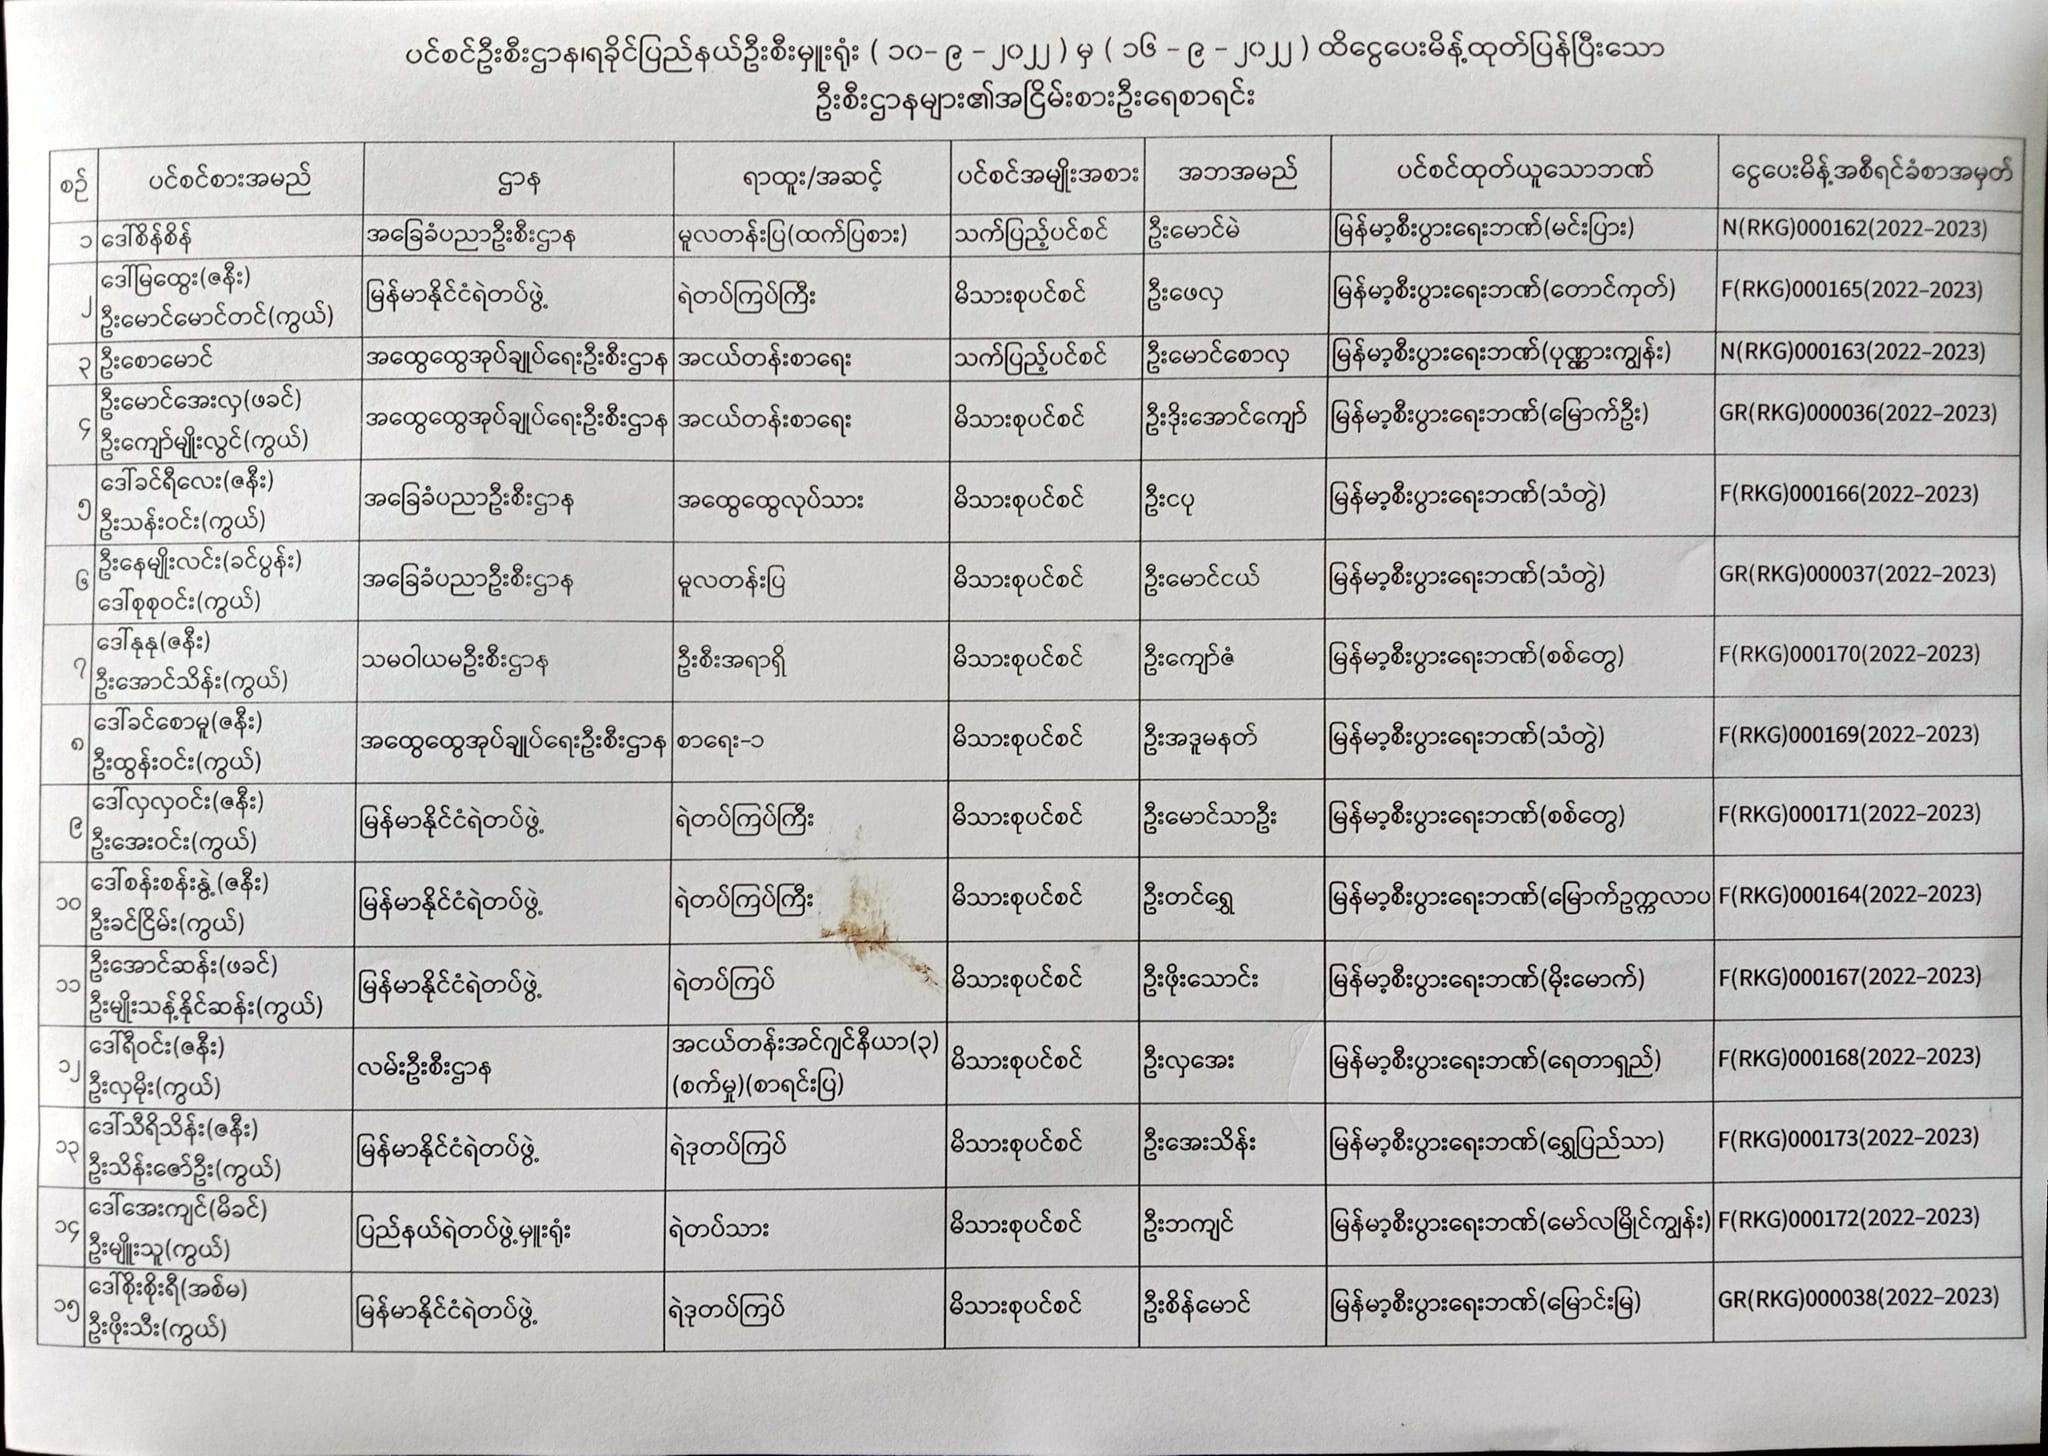 ပင်စင်ဦးစီးဌာန၊ရခိုင်ပြည်နယ်ဦးစီးမှူးရုံး ( ၁၀- ၉ -၂၀၂၂ ) မှ ( ၁၆ - ၉ -၂၀၂၂ ) ထိငွေပေးမိန့်ထုတ်ပြန်ပြီးသော
ဦးစီးဌာနများ၏အငြိမ်းစားဦးရေစာရင်း
စဉ် ပင်စင်စားအမည် ဌာန ရာထူး/အဆင့် ပင်စင်အမျိုးအစား အဘအမည် ပင်စင်ထုတ်ယူသောဘဏ် ငွေပေးမိန့်အစီရင်ခံစာအမှတ်
၁ ဒေါ်စိန်စိန် အခြေခံပညာဦးစီးဌာန မူလတန်းပြ(ထက်ပြစား) သက်ပြည့်ပင်စင် ဦးမောင်မဲ မြန်မာ့စီးပွားရေးဘဏ်(မင်းပြား) N(RKG)000162(2022-2023)
ဒေါ်မြထွေး(ဇနီး)
၂ ဦးမောင်မောင်တင်(ကွယ်) မြန်မာနိုင်ငံရဲတပ်ဖွဲ့ ရဲတပ်ကြပ်ကြီး မိသားစုပင်စင် ဦးဖေလှ မြန်မာ့စီးပွားရေးဘဏ်(တောင်ကုတ်) F(RKG)000165(2022-2023)
၃ ဦးစောမောင် အထွေထွေအုပ်ချုပ်ရေးဦးစီးဌာန အငယ်တန်းစာရေး သက်ပြည့်ပင်စင် ဦးမောင်စောလှ မြန်မာ့စီးပွားရေးဘဏ်(ပုဏ္ဏားကျွန်း) N(RKG)000163(2022-2023)
ဦးမောင်အေးလှ(ဖခင်)
၄ ဦးကျော်မျိုးလွင်(ကွယ်) အထွေထွေအုပ်ချုပ်ရေးဦးစီးဌာန အငယ်တန်းစာရေး မိသားစုပင်စင် ဦးဒိုးအောင်ကျော် မြန်မာ့စီးပွားရေးဘဏ်(မြောက်ဦး) GR(RKG)000036(2022-2023)
ဒေါ်ခင်ရီလေး(ဇနီး)
၅ ဦးသန်းဝင်း(ကွယ်) အခြေခံပညာဦးစီးဌာန အထွေထွေလုပ်သား မိသားစုပင်စင် ဦးငပု မြန်မာ့စီးပွားရေးဘဏ်(သံတွဲ) F(RKG)000166(2022-2023)
ဦးနေမျိုးလင်း(ခင်ပွန်း)
၆ ဒေါ်စုစုဝင်း(ကွယ်) အခြေခံပညာဦးစီးဌာန မူလတန်းပြ မိသားစုပင်စင် ဦးမောင်ငယ် မြန်မာ့စီးပွားရေးဘဏ်(သံတွဲ) GR(RKG)000037(2022-2023)
ဒေါ်နုနု(ဇနီး)
၇ ဦးအောင်သိန်း(ကွယ်) သမဝါယမဦးစီးဌာန ဦးစီးအရာရှိ မိသားစုပင်စင် ဦးကျော်ဇံ မြန်မာ့စီးပွားရေးဘဏ်(စစ်တွေ) F(RKG)000170(2022-2023)
ဒေါ်ခင်စောမူ(ဇနီး)
၈ ဦးထွန်းဝင်း(ကွယ်) အထွေထွေအုပ်ချုပ်ရေးဦးစီးဌာန စာရေး-၁ မိသားစုပင်စင် ဦးအဒူမနတ် မြန်မာ့စီးပွားရေးဘဏ်(သံတွဲ) F(RKG)000169(2022-2023)
ဒေါ်လှလှဝင်း(ဇနီး)
၉ ဦးအေးဝင်း(ကွယ်) မြန်မာနိုင်ငံရဲတပ်ဖွဲ့ ရဲတပ်ကြပ်ကြီး မိသားစုပင်စင် ဦးမောင်သာဦး မြန်မာ့စီးပွားရေးဘဏ်(စစ်တွေ) F(RKG)000171(2022-2023)
ဒေါ်စန်းစန်းနွဲ့(ဇနီး)
၁၀ ဦးခင်ငြိမ်း(ကွယ်) မြန်မာနိုင်ငံရဲတပ်ဖွဲ့ ရဲတပ်ကြပ်ကြီး မိသားစုပင်စင် ဦးတင်ရွှေ မြန်မာ့စီးပွားရေးဘဏ်(မြောက်ဥက္ကလာပ F(RKG)000164(2022-2023)
ဦးအောင်ဆန်း(ဖခင်)
၁၁ ဦးမျိုးသန့်နိုင်ဆန်း(ကွယ်) မြန်မာနိုင်ငံရဲတပ်ဖွဲ့ ရဲတပ်ကြပ် မိသားစုပင်စင် ဦးဖိုးသောင်း မြန်မာ့စီးပွားရေးဘဏ်(မိုးမောက်) F(RKG)000167(2022-2023)
ဒေါ်ရီဝင်း(ဇနီး) အငယ်တန်းအင်ဂျင်နီယာ(၃)
၁၂ ဦးလှမိုး(ကွယ်) လမ်းဦးစီးဌာန (စက်မှု)(စာရင်းပြ) မိသားစုပင်စင် ဦးလှအေး မြန်မာ့စီးပွားရေးဘဏ်(ရေတာရှည်) F(RKG)000168(2022-2023)
ဒေါ်သီရိသိန်း(ဇနီး)
၁၃ ဦးသိန်းဇော်ဦး(ကွယ်) မြန်မာနိုင်ငံရဲတပ်ဖွဲ့ ရဲဒုတပ်ကြပ် မိသားစုပင်စင် ဦးအေးသိန်း မြန်မာ့စီးပွားရေးဘဏ်(ရွှေပြည်သာ) F(RKG)000173(2022-2023)
ဒေါ်အေးကျင်(မိခင်)
၁၄ ဦးမျိုးသူ(ကွယ်) ပြည်နယ်ရဲတပ်ဖွဲ့မှူးရုံး ရဲတပ်သား မိသားစုပင်စင် ဦးဘကျင် မြန်မာ့စီးပွားရေးဘဏ်(မော်လမြိုင်ကျွန်း) F(RKG)000172(2022-2023)
ဒေါ်စိုးစိုးရီ(အစ်မ)
၁၅ ဦးဖိုးသီး(ကွယ်) မြန်မာနိုင်ငံရဲတပ်ဖွဲ့ ရဲဒုတပ်ကြပ် မိသားစုပင်စင် ဦးစိန်မောင် မြန်မာ့စီးပွားရေးဘဏ်(မြောင်းမြ) GR(RKG)000038(2022-2023)